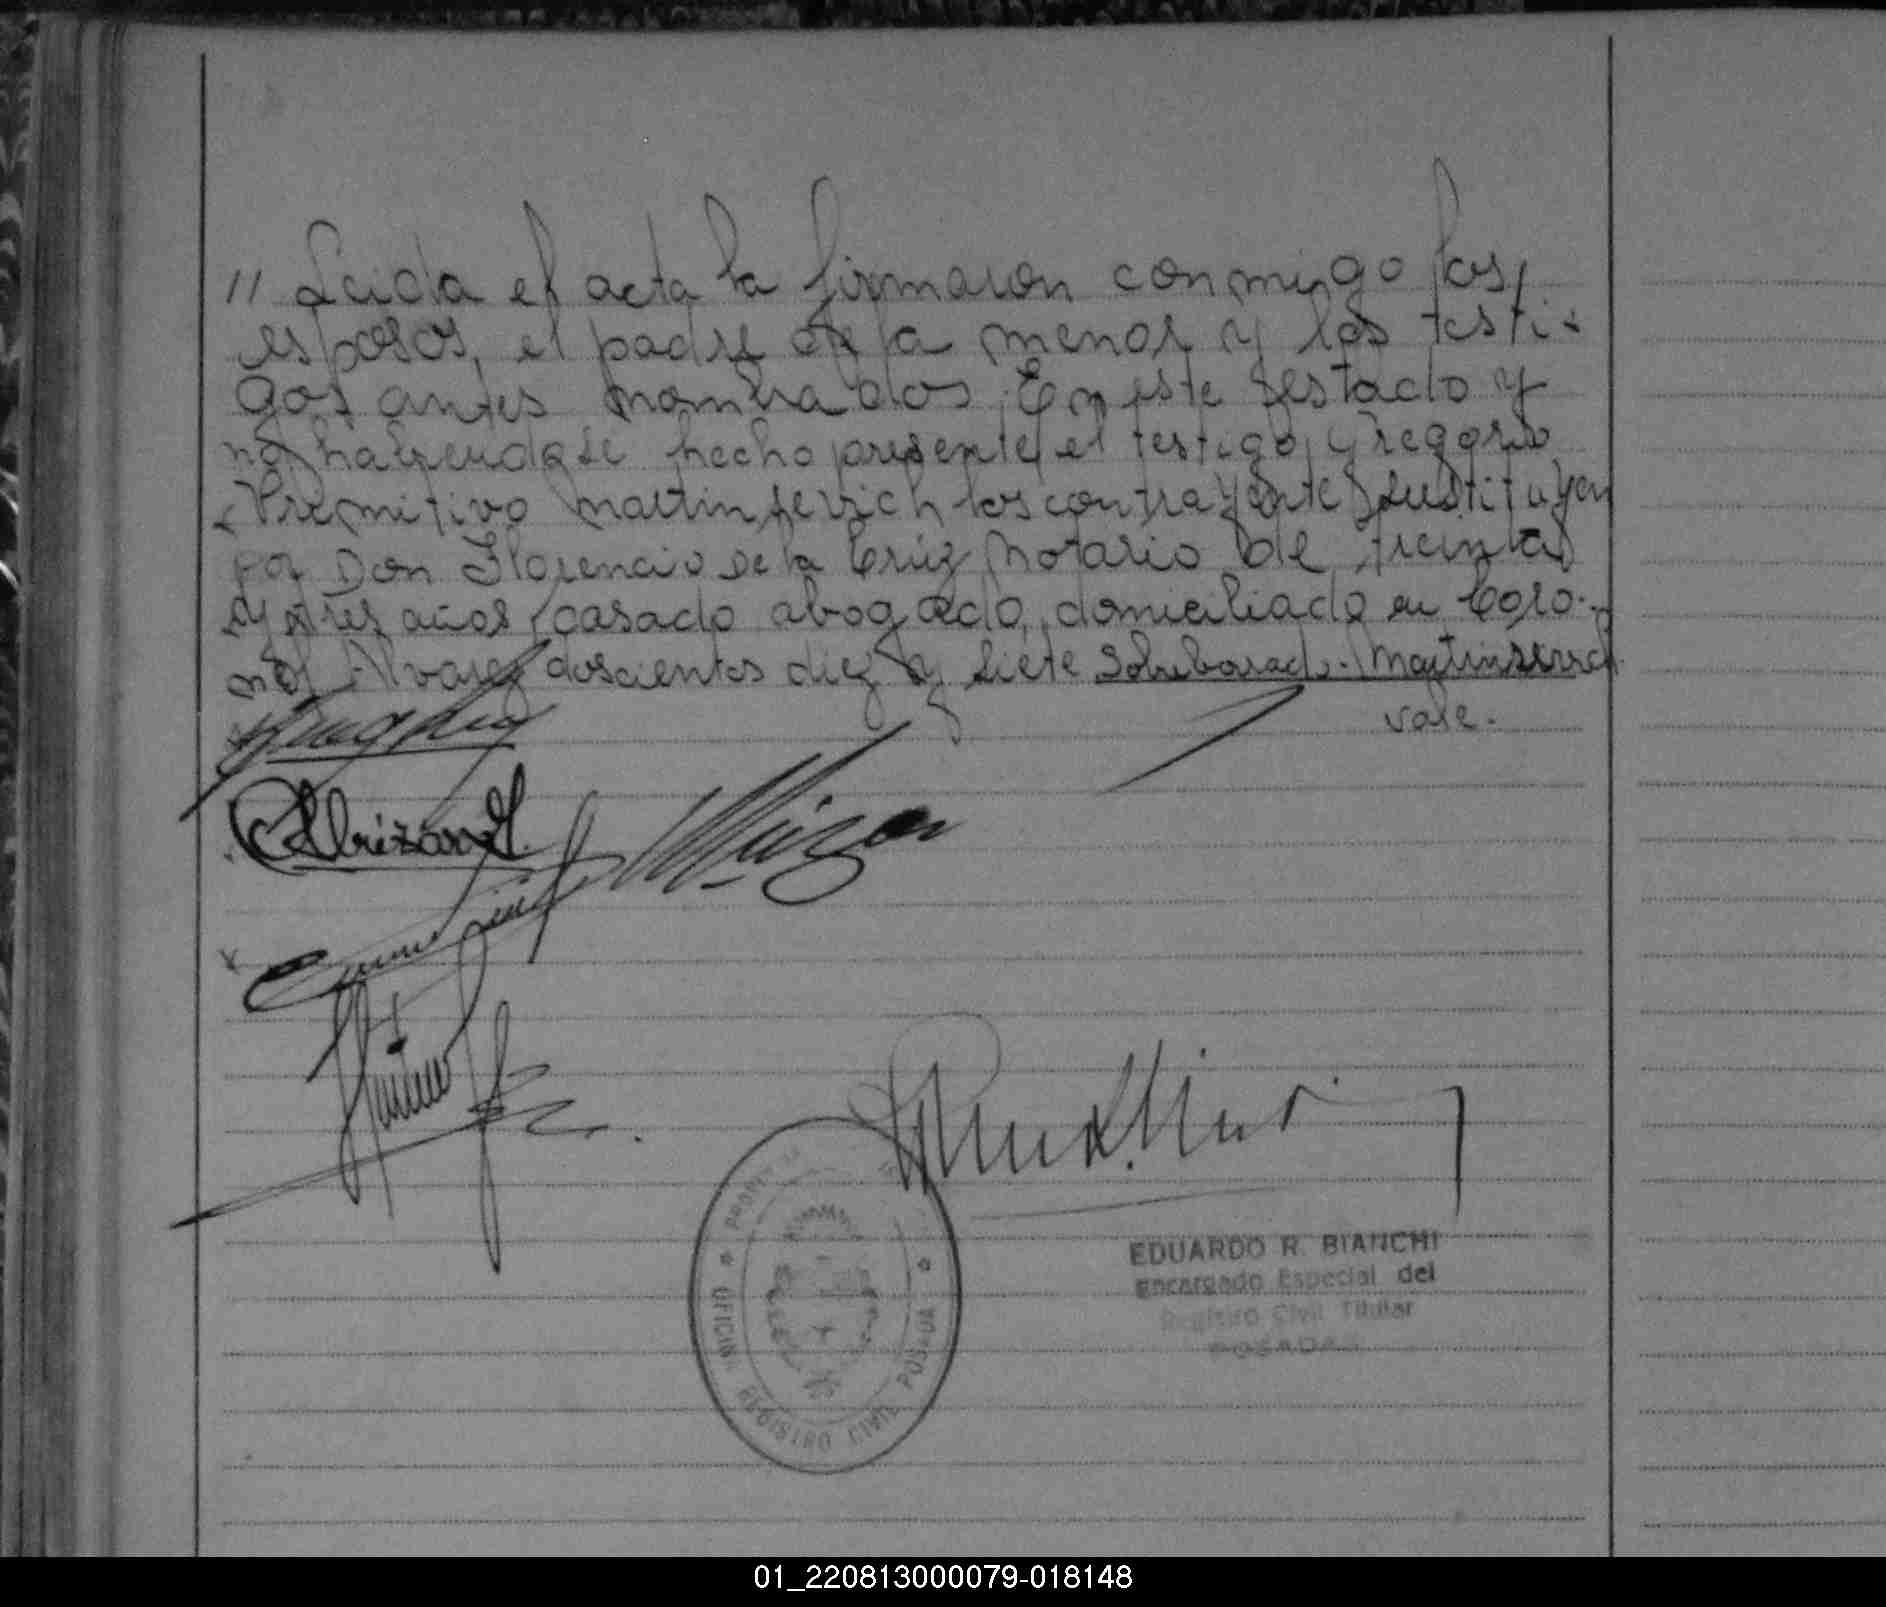 // Leida el acta la firmaron conmigo los
esposos, el padre de la menor y los testi-
gos antes nombrados. En este estado y
no habiendose hecho presente el testigo Gregorio
Primitivo Martinserrich los contrayentes sustituyen
por Don Florencio de la Cruz Notario de treinta
y tres años, casado abogado, domiciliado en Coro-
nel Alvarez doscientos diez y siete Sobreborrado - Martinserrich
vale.
EDUARDO R. BIANCHI
Encargado Especial del
Registro Civil Titular
POSADAS
OFICINA REGISTRO CIVIL POSADA
01_220813000079-018148